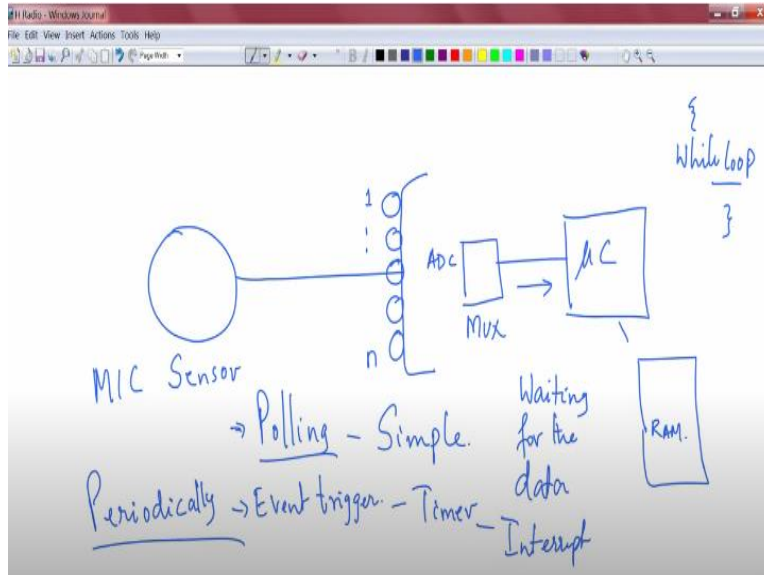 H Radio - Windows Journal
File Edit View Insert Actions Tools Help
Page Width
{
While loop
}
1
ADC
μC
MUX
n
MIC Sensor
RAM.
→ Polling - Simple.
Waiting
for the
data
Periodically → Event trigger. - Timer - Interrupt